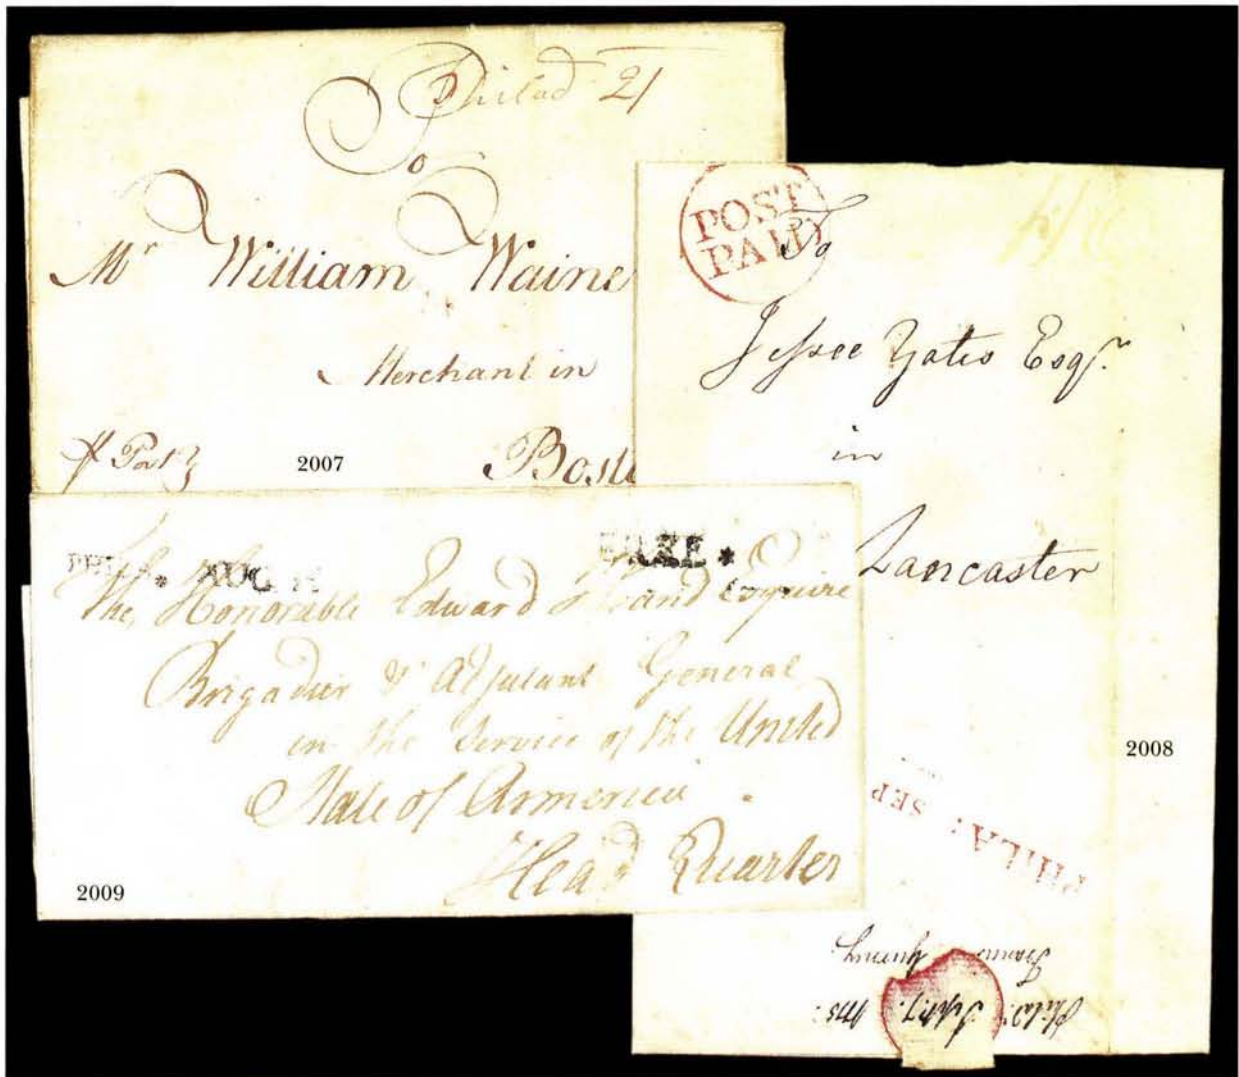 Philad 21
To
Mr William Waine
Merchant in
2007
POST
PAID
To
Jessee Yates Esqr.
in
Lancaster
2008
PHILA: SEP
Francis Gurney.
Philada. Sepr. 7. 1775.
PHILA* AUG
FREE *
The Honorable Edward Hand Esquire
Brigadier & Adjutant General
in the Service of the United
State of Armerica.
Head Quarter
2009